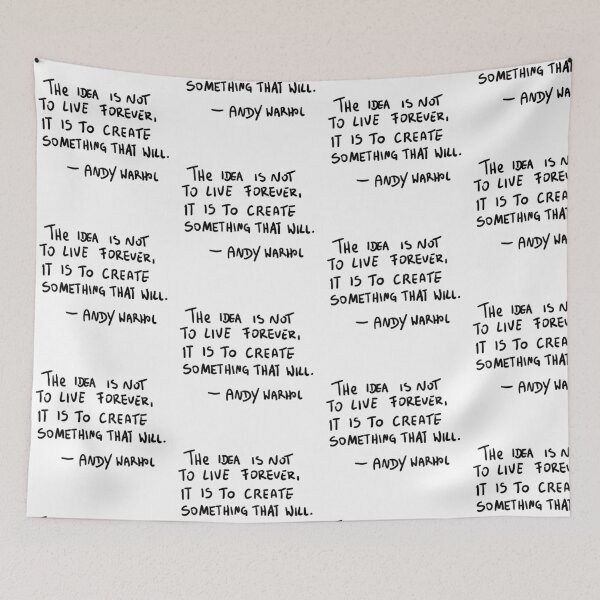 The IDEA IS NOT
TO LIVE FOREVER,
IT IS TO CREATE
SOMETHING THAT WILL.
— ANDY WARHOL
The IDEA IS NOT
TO LIVE FOREVER,
IT IS TO CREATE
SOMETHING THAT WILL.
— ANDY WARHOL
The IDEA IS NOT
TO LIVE FOREVER,
IT IS TO CREATE
SOMETHING THAT WILL.
— ANDY WARHOL
SOMETHING THAT WILL.
— ANDY WARHOL
The IDEA IS NOT
TO LIVE FOREVER,
IT IS TO CREATE
SOMETHING THAT WILL.
— ANDY WARHOL
The IDEA IS NOT
TO LIVE FOREVER,
IT IS TO CREATE
SOMETHING THAT WILL.
— ANDY WARHOL
The IDEA IS NOT
TO LIVE FOREVER,
IT IS TO CREATE
SOMETHING THAT WILL.
The IDEA IS NOT
TO LIVE FOREVER,
IT IS TO CREATE
SOMETHING THAT WILL.
— ANDY WARHOL
The IDEA IS NOT
TO LIVE FOREVER,
IT IS TO CREATE
SOMETHING THAT WILL.
— ANDY WARHOL
The IDEA IS NOT
TO LIVE FOREVER,
IT IS TO CREATE
SOMETHING THAT WILL.
— ANDY WARHOL
SOMETHING THA
— ANDY WA
The IDEA IS N
TO LIVE FOREV
IT IS TO CREA
SOMETHING THA
— ANDY WA
The IDEA IS N
TO LIVE FOREV
IT IS TO CREA
SOMETHING THA
— ANDY WA
The IDEA IS N
TO LIVE FOREV
IT IS TO CREA
SOMETHING THA